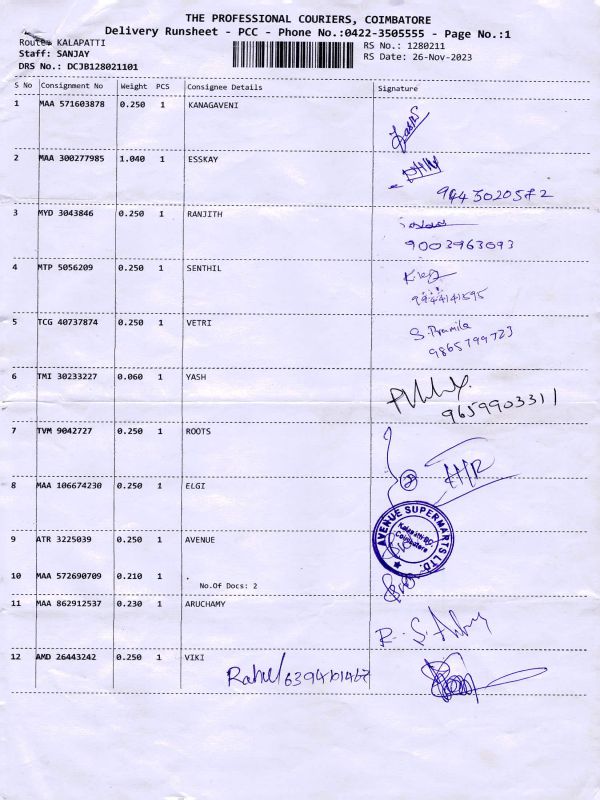 THE PROFESSIONAL COURIERS, COIMBATORE
Delivery Runsheet - PCC - Phone No.:0422-3505555 - Page No.:1
Route: KALAPATTI
RS No.: 1280211
Staff: SANJAY
RS Date: 26-Nov-2023
DRS No.: DCJB128021101
S No Consignment No Weight PCS Consignee Details Signature
1 MAA 571603878 0.250 1 KANAGAVENI
2 MAA 300277985 1.040 1 ESSKAY
3 MYD 3043846 0.250 1 RANJITH
9003963093
4 MTP 5056209 0.250 1 SENTHIL
9944141595
5 TCG 40737874 0.250 1 VETRI
S. Pramila
9865799723
6 TMI 30233227 0.060 1 YASH
9659903311
7 TVM 9042727 0.250 1 ROOTS
8 MAA 106674230 0.250 1 ELGI
AVENUE SUPERMARTS LTD.
Kalapatti-BC,
Coimbatore
9 ATR 3225039 0.250 1 AVENUE
10 MAA 572690709 0.210 1 .
No.Of Docs: 2
11 MAA 862912537 0.230 1 ARUCHAMY
12 AMD 26443242 0.250 1 VIKI
Rahul